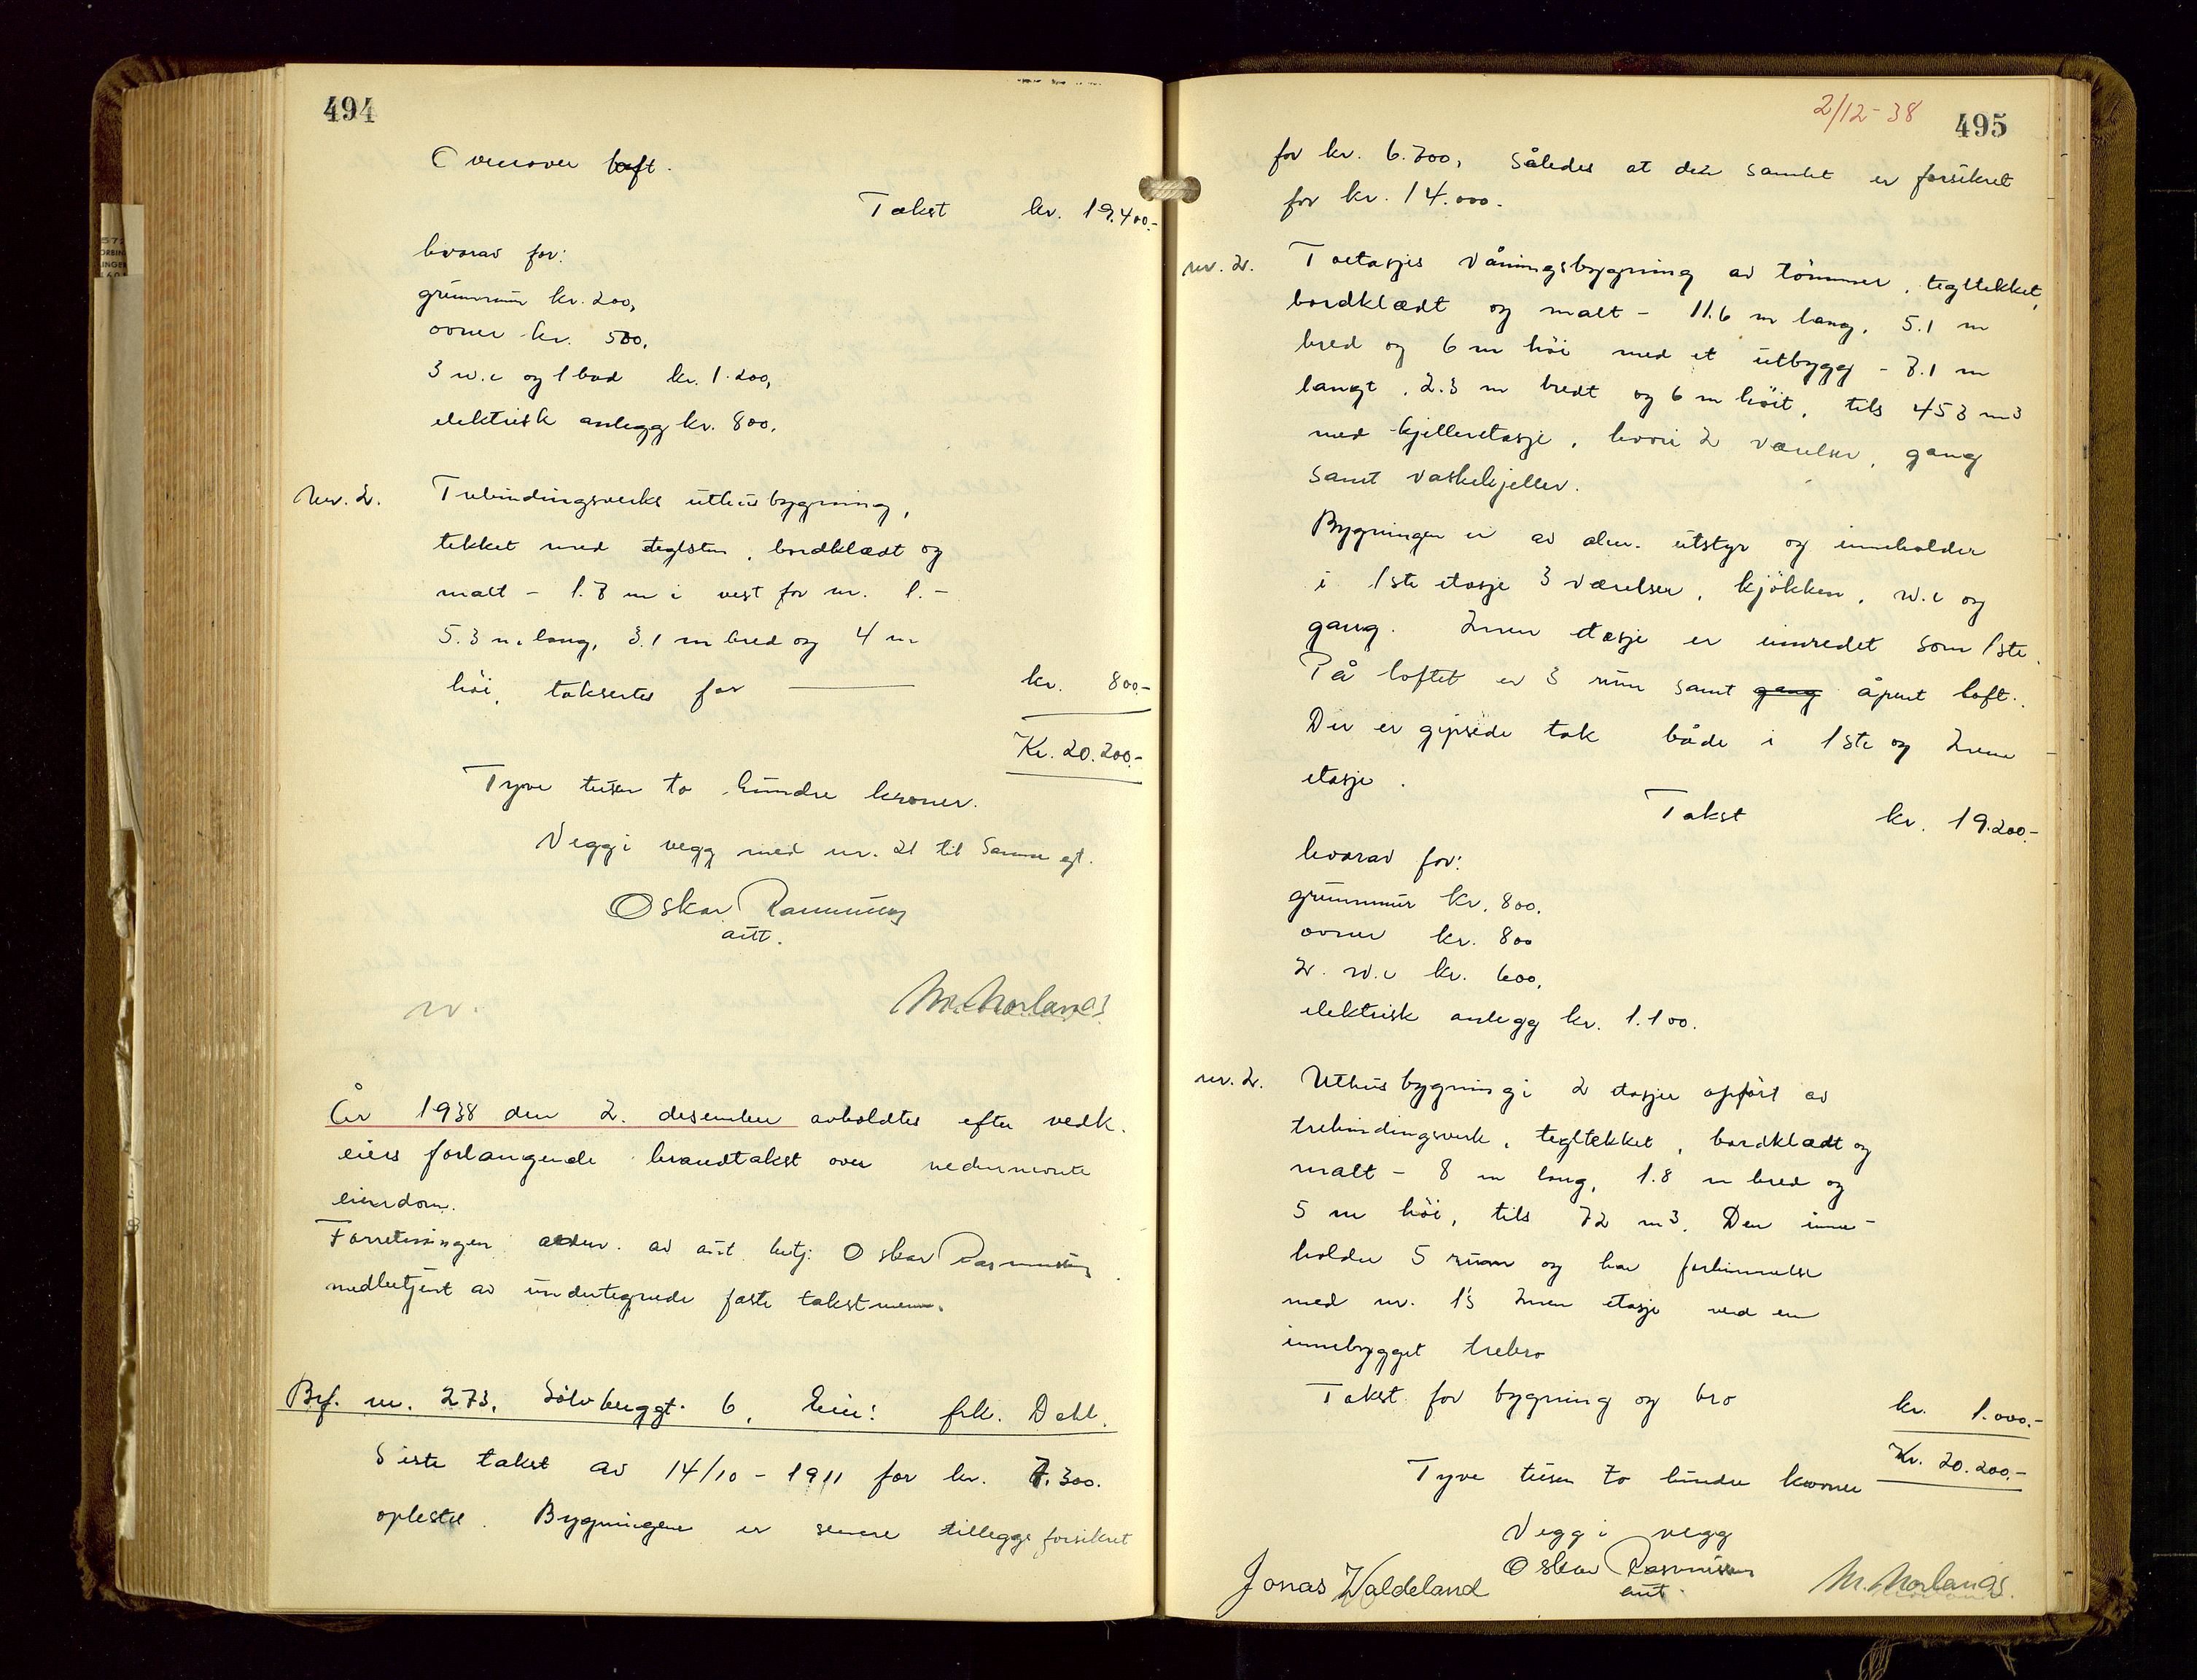 494
Ovenover loft.
Takst kr. 19.400.-
hvorav for:
grunnmur kr. 200,
ovner kr. 500,
3 w.c og 1 bad kr. 1.200,
elektrisk anlegg kr. 800.
Nr. 2. Trebindingsverks uthusbygning,
tekket med teglsten, bordklædt og
malt - 1.7 m i vest for nr. 1. -
5.3 m lang, 3.1 m bred og 4 m
höi, takseres for — kr. 800.-
Kr. 20.200.-
Tyve tusen to hundre kroner.
Vegg i vegg med nr. 21 til samme gt.
Oskar Rasmussen
aut.
M. Norland
År 1938 den 2. desember avholdtes efter vedk.
eiers forlangende branntakst over nedennevnte
eiendom.
Forretningen adm. av aut. betj. Oskar Rasmussen
medbetjent av undertegnede faste takstmenn.
Brf. nr. 273, Sölvberggt. 6, Eier: frk. Dahl.
Siste takst av 14/10 - 1911 for kr. 7.300.
oplestes. Bygningene er senere tilleggsforsikret
2/12-38
495
for kr. 6.700, således at den samlet er forsikret
for kr. 14.000.
nr. 2. Toetasjes våningsbygning av tömmer, tegltekket,
bordklædt og malt - 11.6 m lang, 5.1 m
bred og 6 m höi med et utbygg - 7.1 m
langt, 2.3 m bredt og 6 m höit, tils 453 m3
med kjelleretasje, hvori 2 værelser, gang
samt vaskekjeller.
Bygningen er av alm. utstyr og inneholder
i 1ste etasje 3 værelser, kjökken, w.c og
gang. 2nen etasje er innredet som 1ste.
På loftet er 3 rum samt gang åpent loft.
Der er gipsede tak både i 1ste og 2nen
etasje.
Takst kr. 19.200.-
hvorav for:
grunnmur kr. 800.
ovner kr. 800
2 w.c kr. 600,
elektrisk anlegg kr. 1.100.
nr. 2. Uthusbygning i 2 etasjer opfört av
trebindingsverk, tegltekket, bordklædt og
malt - 8 m lang, 1.8 m bred og
5 m höi, tils 72 m3. Den inne-
holder 5 rum og har forbinnelse
med nr. 1's 2nen etasje ved en
innebygget trebro
Takst for bygning og bro kr. 1.000.-
Kr. 20.200.-
Tyve tusen to hundre kroner
Vegg i vegg
Oskar Rasmussen
aut.
Jonas Waldeland
M. Norland